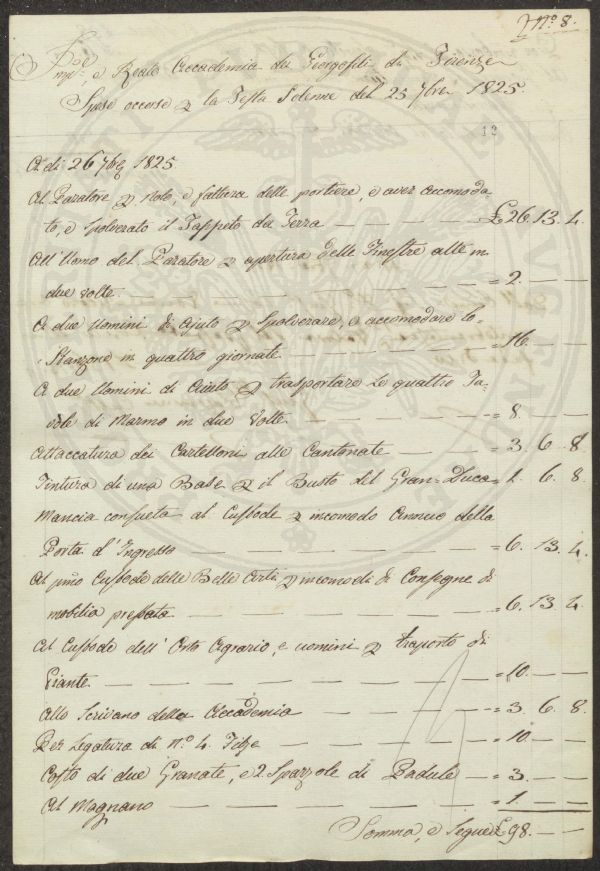 N° 8.
Imp.le e Reale Accademia dei Georgofili di Firenze
Spese occorse p la Festa Solenne del 25 7bre 1825.
A di 26 7bre 1825
Al Paratore p nolo, e fattura delle portiere, e aver accomoda
to, e spolverato il Tappeto da Terra — £ 26. 13. 4.
All'Uomo del Paratore p apertura delle Finestre alte in
due volte — = 2. — —
A due Uomini di Ajuto p spolverare, e accomodare lo
Stanzone in quattro giornate — = 16. — —
A due Uomini di Aiuto p trasportare le quattro Ta=
vole di Marmo in due Volte. — = 8. — —
Attaccatura dei Cartelloni alle Cantonate — = 3. 6. 8.
Tintura di una Base p il Busto del Gran-Duca = 1. 6. 8.
Mancia consueta al Custode p incomodo Annuo della
Porta d'Ingresso — = 6. 13. 4.
Al pmo Custode delle Belle Arti p incomodi di Consegne di
mobilia prestata — = 6. 13. 4.
Al Custode dell'Orto Agrario, e uomini p trasporto di
Piante — = 10. — —
Allo Scrivano della Accademia — = 3. 6. 8.
Per Legatura di n° 4. Filze — = 10. — —
Costo di due Granate, e 2 Spazzole di Padule — = 3. — —
Al Magnano — = 1. — —
Somma, e Segue £ 98. — —